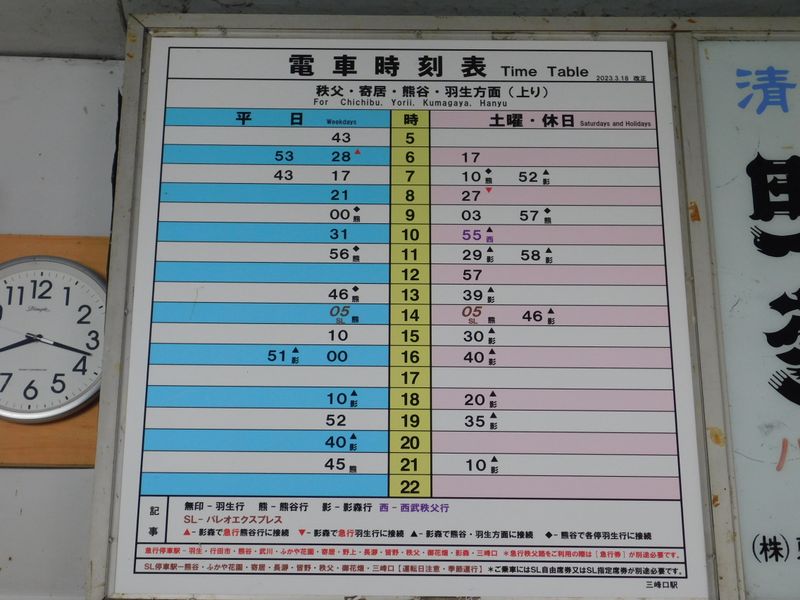 電車時刻表 Time Table 2023.3.18 改正
秩父・寄居・熊谷・羽生方面（上り）
For Chichibu, Yorii, Kumagaya, Hanyu
平日 Weekdays 時 土曜・休日 Saturdays and Holidays
43 5
53 28▲ 6 17
43 17 7 10◆熊 52▲影
21 8 27▼
00◆熊 9 03 57◆熊
31 10 55▲西
56◆熊 11 29▲影 58▲影
12 57
46◆熊 13 39▲影
05 SL 熊 14 05 SL 熊 46▲影
10 15 30▲影
51▲影 00 16 40▲影
17
10▲影 18 20▲影
52 19 35▲影
40▲影 20
45熊 21 10▲影
22
記事
無印－羽生行 熊－熊谷行 影－影森行 西－西武秩父行
SL－パレオエクスプレス
▲－影森で急行熊谷行に接続 ▼－影森で急行羽生行に接続 ▲－影森で熊谷・羽生方面に接続 ◆－熊谷で各停羽生行に接続
急行停車駅－羽生・行田市・熊谷・武川・ふかや花園・寄居・野上・長瀞・皆野・秩父・御花畑・影森・三峰口 ＊急行秩父路をご利用の際は［急行券］が別途必要です。
SL停車駅－熊谷・ふかや花園・寄居・長瀞・皆野・秩父・御花畑・三峰口【運転日注意・季節運行】＊ご乗車にはSL自由席券又はSL指定席券が別途必要です。
三峰口駅
11 12 1
2
3
4
5
6
7
清
(株)